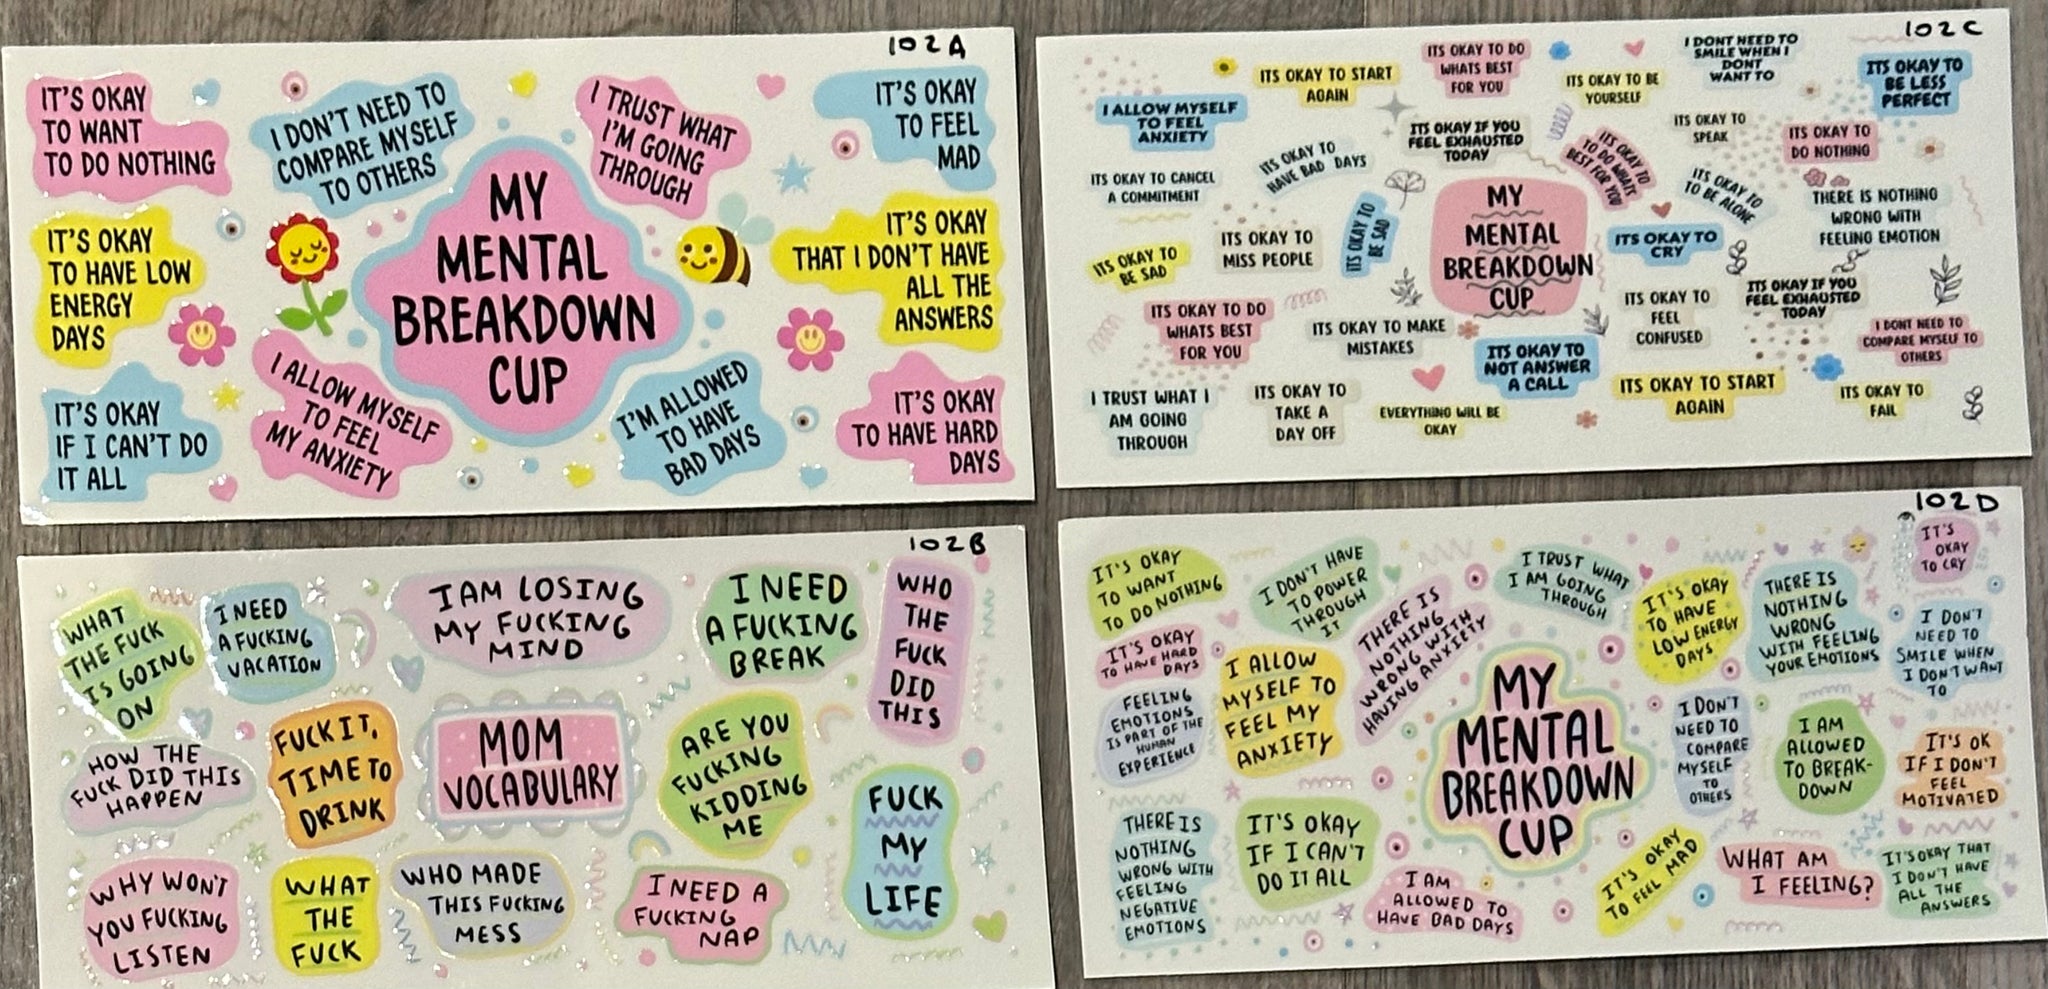 102A
IT'S OKAY
TO WANT
TO DO NOTHING
I DON'T NEED TO
COMPARE MYSELF
TO OTHERS
I TRUST WHAT
I'M GOING
THROUGH
IT'S OKAY
TO FEEL
MAD
IT'S OKAY
TO HAVE LOW
ENERGY
DAYS
MY
MENTAL
BREAKDOWN
CUP
IT'S OKAY
THAT I DON'T HAVE
ALL THE
ANSWERS
IT'S OKAY
IF I CAN'T DO
IT ALL
I ALLOW MYSELF
TO FEEL
MY ANXIETY
I'M ALLOWED
TO HAVE
BAD DAYS
IT'S OKAY
TO HAVE HARD
DAYS
102C
I ALLOW MYSELF
TO FEEL
ANXIETY
ITS OKAY TO START
AGAIN
ITS OKAY TO DO
WHATS BEST
FOR YOU
ITS OKAY TO BE
YOURSELF
I DONT NEED TO
SMILE WHEN I
DONT
WANT TO
ITS OKAY TO
BE LESS
PERFECT
ITS OKAY TO CANCEL
A COMMITMENT
ITS OKAY TO
HAVE BAD DAYS
ITS OKAY IF YOU
FEEL EXHAUSTED
TODAY
ITS OKAY TO
TO DO WHATS
BEST FOR YOU
ITS OKAY TO
SPEAK
ITS OKAY TO
DO NOTHING
ITS OKAY TO
BE SAD
ITS OKAY TO
MISS PEOPLE
ITS OKAY TO
BE SAD
MY
MENTAL
BREAKDOWN
CUP
ITS OKAY TO
CRY
ITS OKAY TO
TO BE ALONE
THERE IS NOTHING
WRONG WITH
FEELING EMOTION
ITS OKAY TO DO
WHATS BEST
FOR YOU
ITS OKAY TO MAKE
MISTAKES
ITS OKAY TO
NOT ANSWER
A CALL
ITS OKAY TO
FEEL
CONFUSED
ITS OKAY IF YOU
FEEL EXHAUSTED
TODAY
I DONT NEED TO
COMPARE MYSELF TO
OTHERS
I TRUST WHAT I
AM GOING
THROUGH
ITS OKAY TO
TAKE A
DAY OFF
EVERYTHING WILL BE
OKAY
ITS OKAY TO START
AGAIN
ITS OKAY TO
FAIL
102B
WHAT
THE FUCK
IS GOING
ON
I NEED
A FUCKING
VACATION
I AM LOSING
MY FUCKING
MIND
I NEED
A FUCKING
BREAK
WHO
THE
FUCK
DID
THIS
HOW THE
FUCK DID THIS
HAPPEN
FUCK IT,
TIME TO
DRINK
MOM
VOCABULARY
ARE YOU
FUCKING
KIDDING
ME
FUCK
MY
LIFE
WHY WON'T
YOU FUCKING
LISTEN
WHAT
THE
FUCK
WHO MADE
THIS FUCKING
MESS
I NEED A
FUCKING
NAP
102D
IT'S OKAY
TO WANT
TO DO NOTHING
I DON'T HAVE
TO POWER
THROUGH
IT
THERE IS
NOTHING
WRONG WITH
HAVING ANXIETY
I TRUST WHAT
I AM GOING
THROUGH
IT'S OKAY
TO HAVE
LOW ENERGY
DAYS
THERE IS
NOTHING
WRONG
WITH FEELING
YOUR EMOTIONS
IT'S
OKAY
TO CRY
IT'S OKAY
TO HAVE HARD
DAYS
I ALLOW
MYSELF TO
FEEL MY
ANXIETY
I DON'T
NEED TO
SMILE WHEN
I DON'T WANT
TO
FEELING
EMOTIONS
IS PART OF THE
HUMAN
EXPERIENCE
MY
MENTAL
BREAKDOWN
CUP
I DON'T
NEED TO
COMPARE
MYSELF
TO
OTHERS
I AM
ALLOWED
TO BREAK-
DOWN
IT'S OK
IF I DON'T
FEEL
MOTIVATED
THERE IS
NOTHING
WRONG WITH
FEELING
NEGATIVE
EMOTIONS
IT'S OKAY
IF I CAN'T
DO IT ALL
I AM
ALLOWED TO
HAVE BAD DAYS
IT'S OKAY
TO FEEL MAD
WHAT AM
I FEELING?
IT'S OKAY THAT
I DON'T HAVE
ALL THE
ANSWERS